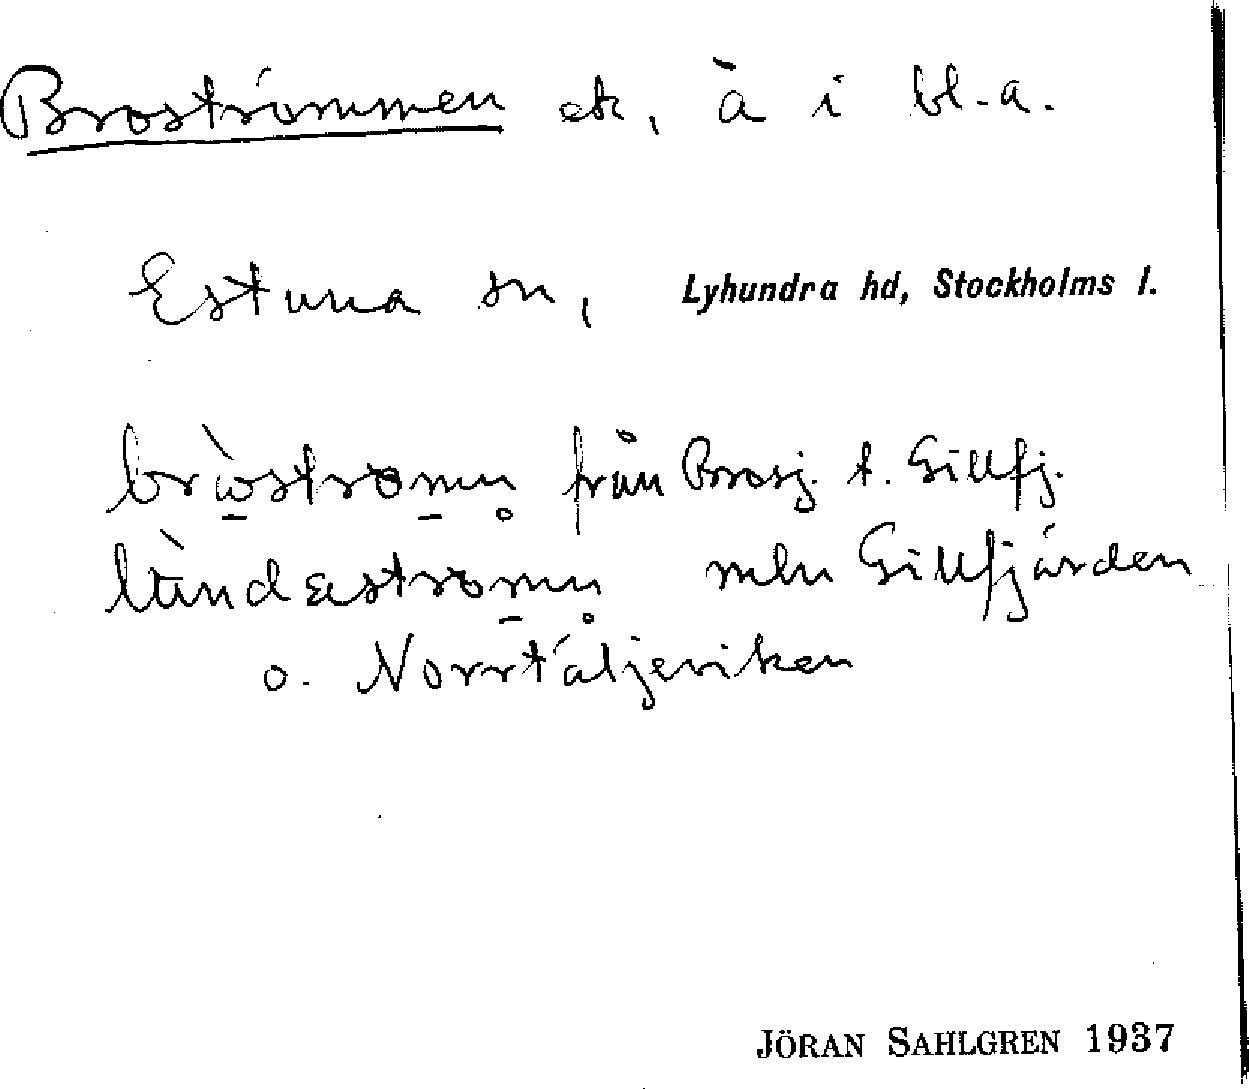 Broströmmen etc, å i bl.a.
Estuna sn, Lyhundra hd, Stockholms l.
från Brosj. t. Gillfj.
mln Gillfjärden
o. Norrtäljeviken
JÖRAN SAHLGREN 1937